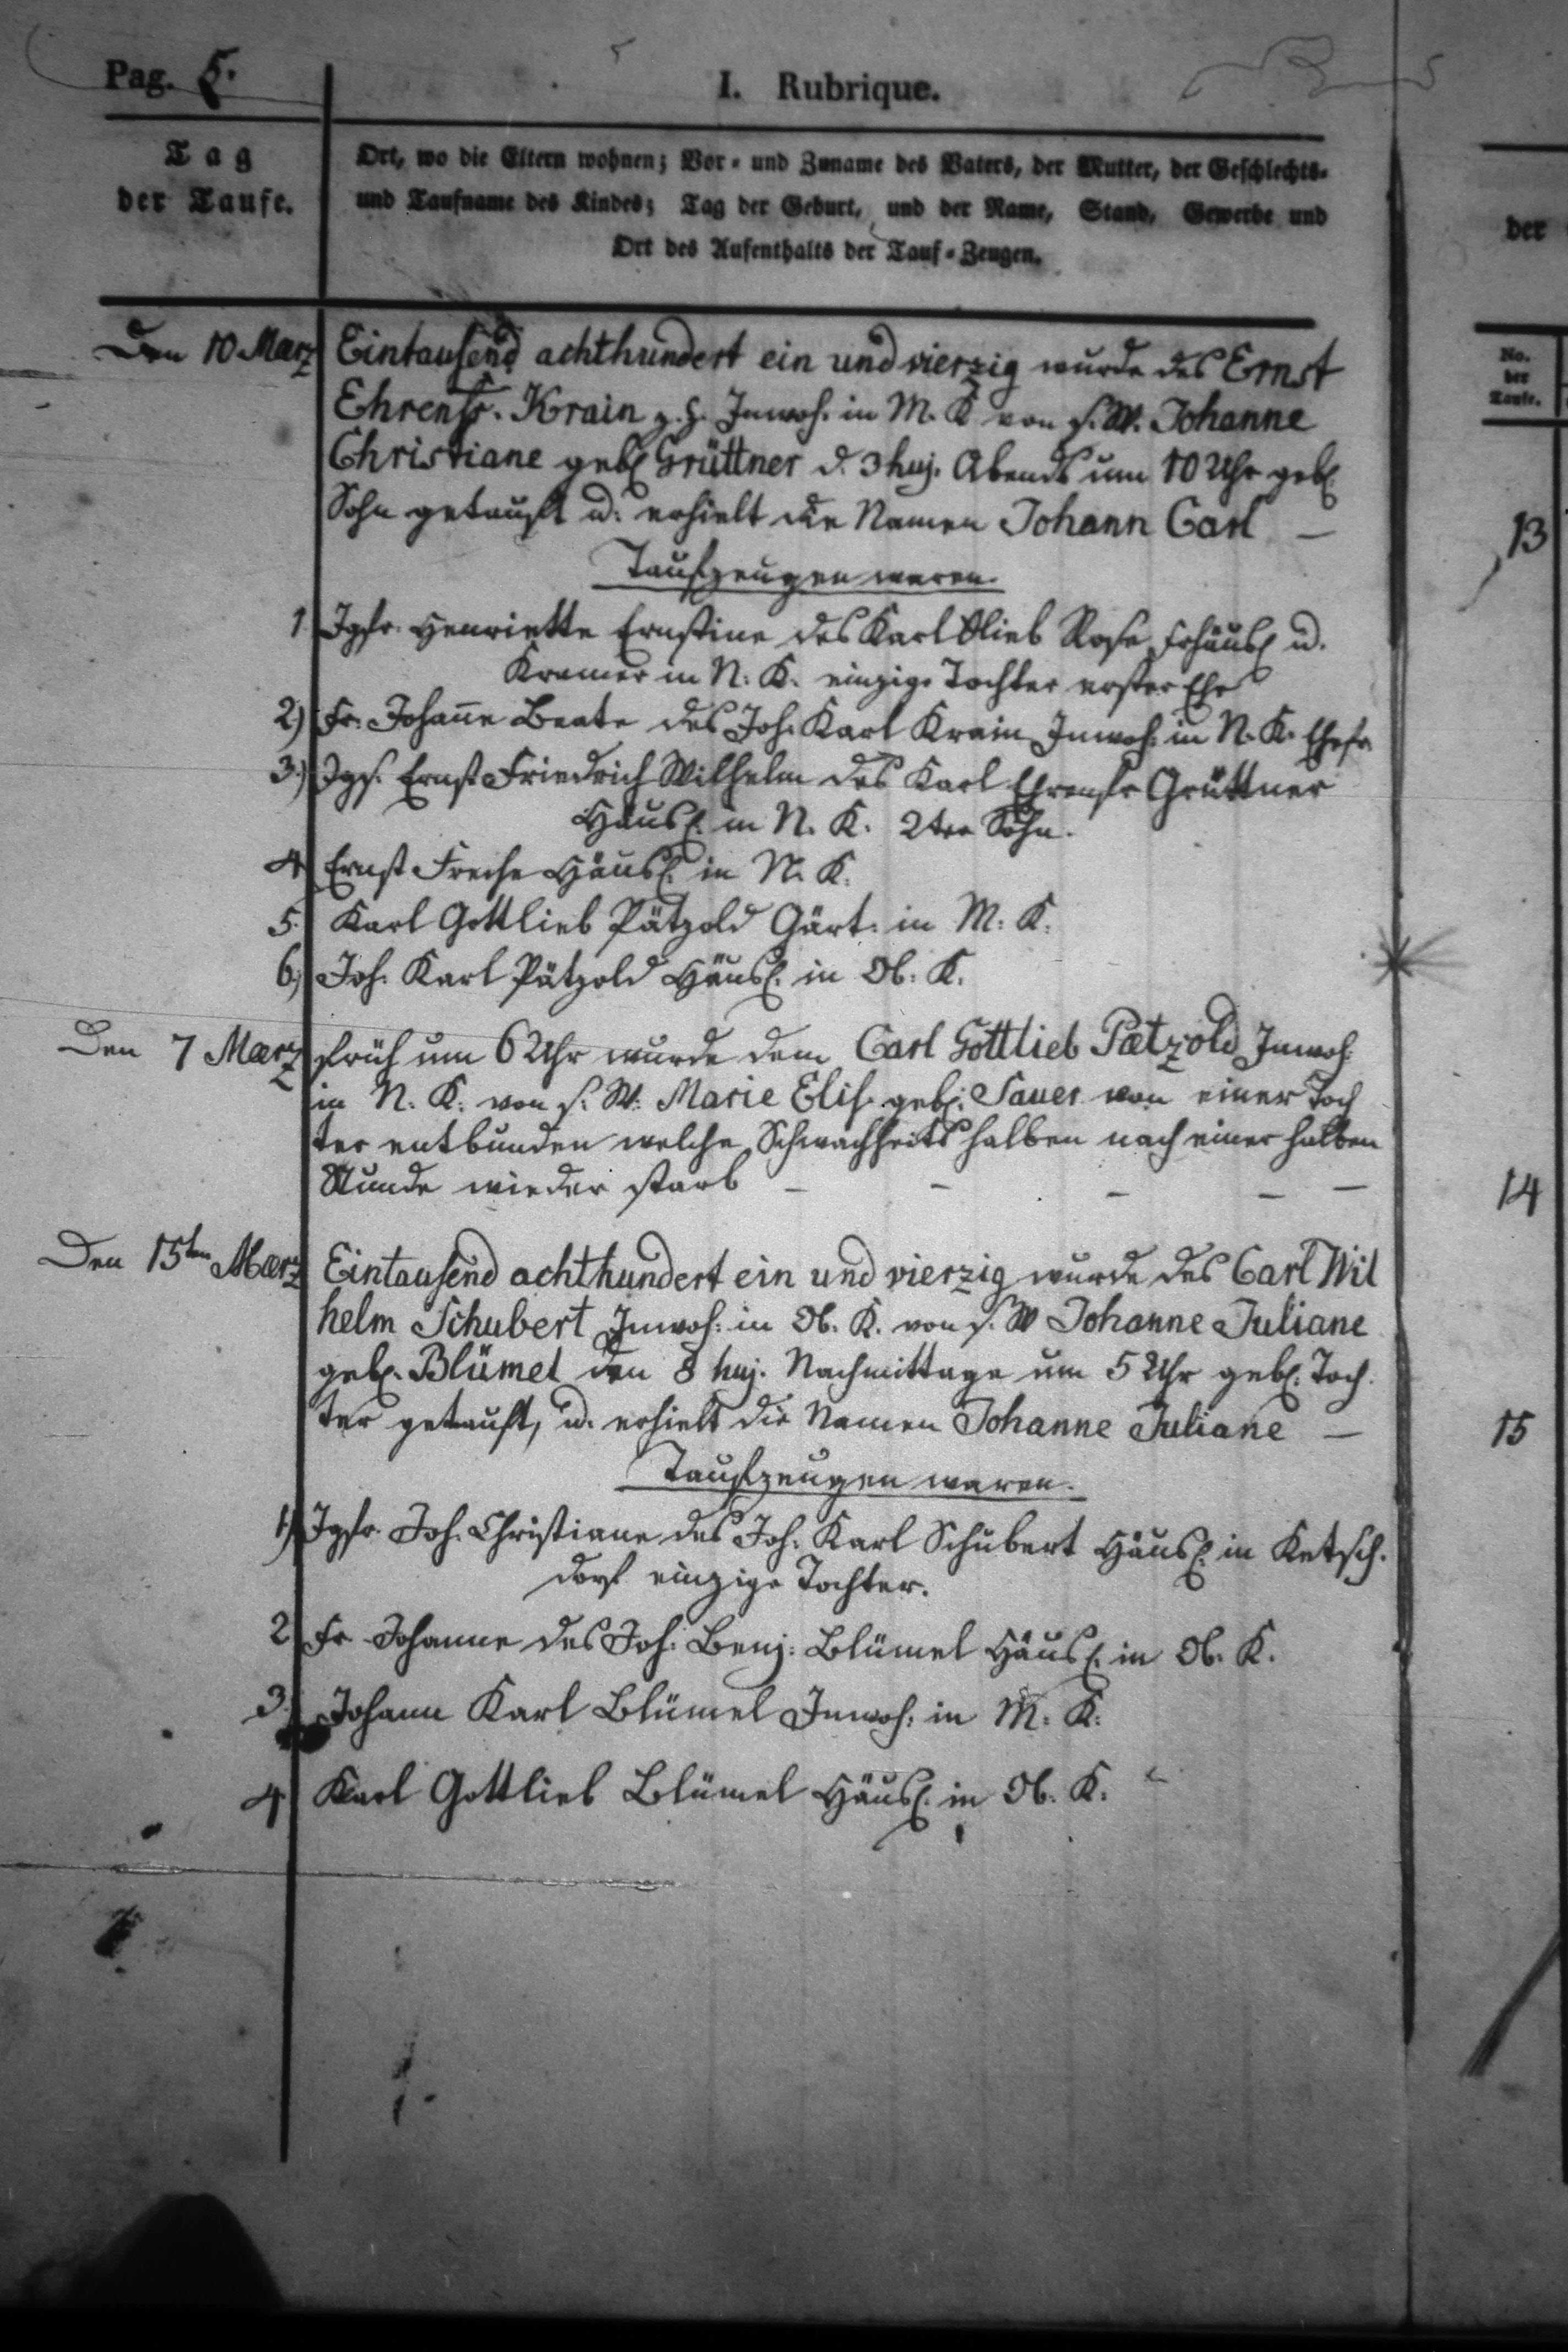 Pag. 5.
I. Rubrique.
Tag
der Taufe.
Ort, wo die Eltern wohnen; Vor- und Zuname des Vaters, der Mutter, der Geschlechts-
und Taufname des Kindes; Tag der Geburt, und der Name, Stand, Gewerbe und
Ort des Aufenthalts der Tauf-Zeugen.
Den 10 Maerz Eintausend achthundert ein und vierzig wurde des Ernst
Ehrenfr. Krain z. H. Inwoh. in M. K. von s. W. Johanne
Christiane geb. Grüttner d. 3 huj. Abends um 10 Uhr geb.
Sohn getauft u. erhielt die Namen Johann Carl —
Taufzeugen waren.
1. Jgfr. Henriette Ernstine des Karl Glieb Rose Frhäusl. u.
Kramer in N. K. einzige Tochter erster Ehe
2) Fr. Johanne Beate des Joh. Karl Krain Inwoh. in N. K. Ehefr.
3.) Jgs. Ernst Friedrich Wilhelm des Karl Ehrenfr Grüttner
Häusl. in N. K. 2ter Sohn.
4 Ernst Freche Häusl. in N. K.
5. Karl Gottlieb Pätzold Gärt. in M. K.
6) Joh. Karl Pätzold Häusl. in Ob. K.
Den 7 Maerz früh um 6 Uhr wurde dem Carl Gottlieb Paetzold Inwoh.
in N. K. von s. W. Marie Elis. geb. Sauer von einer Toch
ter entbunden welche Schwachheits halben nach einer halben
Stunde wieder starb — — — — —
Den 15ten Maerz Eintausend achthundert ein und vierzig wurde des Carl Wil
helm Schubert Inwoh. in Ob. K. von s. W Johanne Juliane
geb. Blümel den 8 huj. Nachmittage um 5 Uhr geb. Toch.
ter getauft, u. erhielt die Namen Johanne Juliane —
Taufzeugen waren.
1) Jgfr. Joh. Christiane des Joh. Karl Schubert Häusl. in Ketsch.
dorf einzige Tochter.
2 Fr Johanne des Joh. Benj. Blümel Häusl. in Ob. K.
3. Johann Karl Blümel Inwoh. in M. K.
4 Karl Gottlieb Blümel Häusl. in Ob. K.
der
No.
der
Taufe.
13
14
15